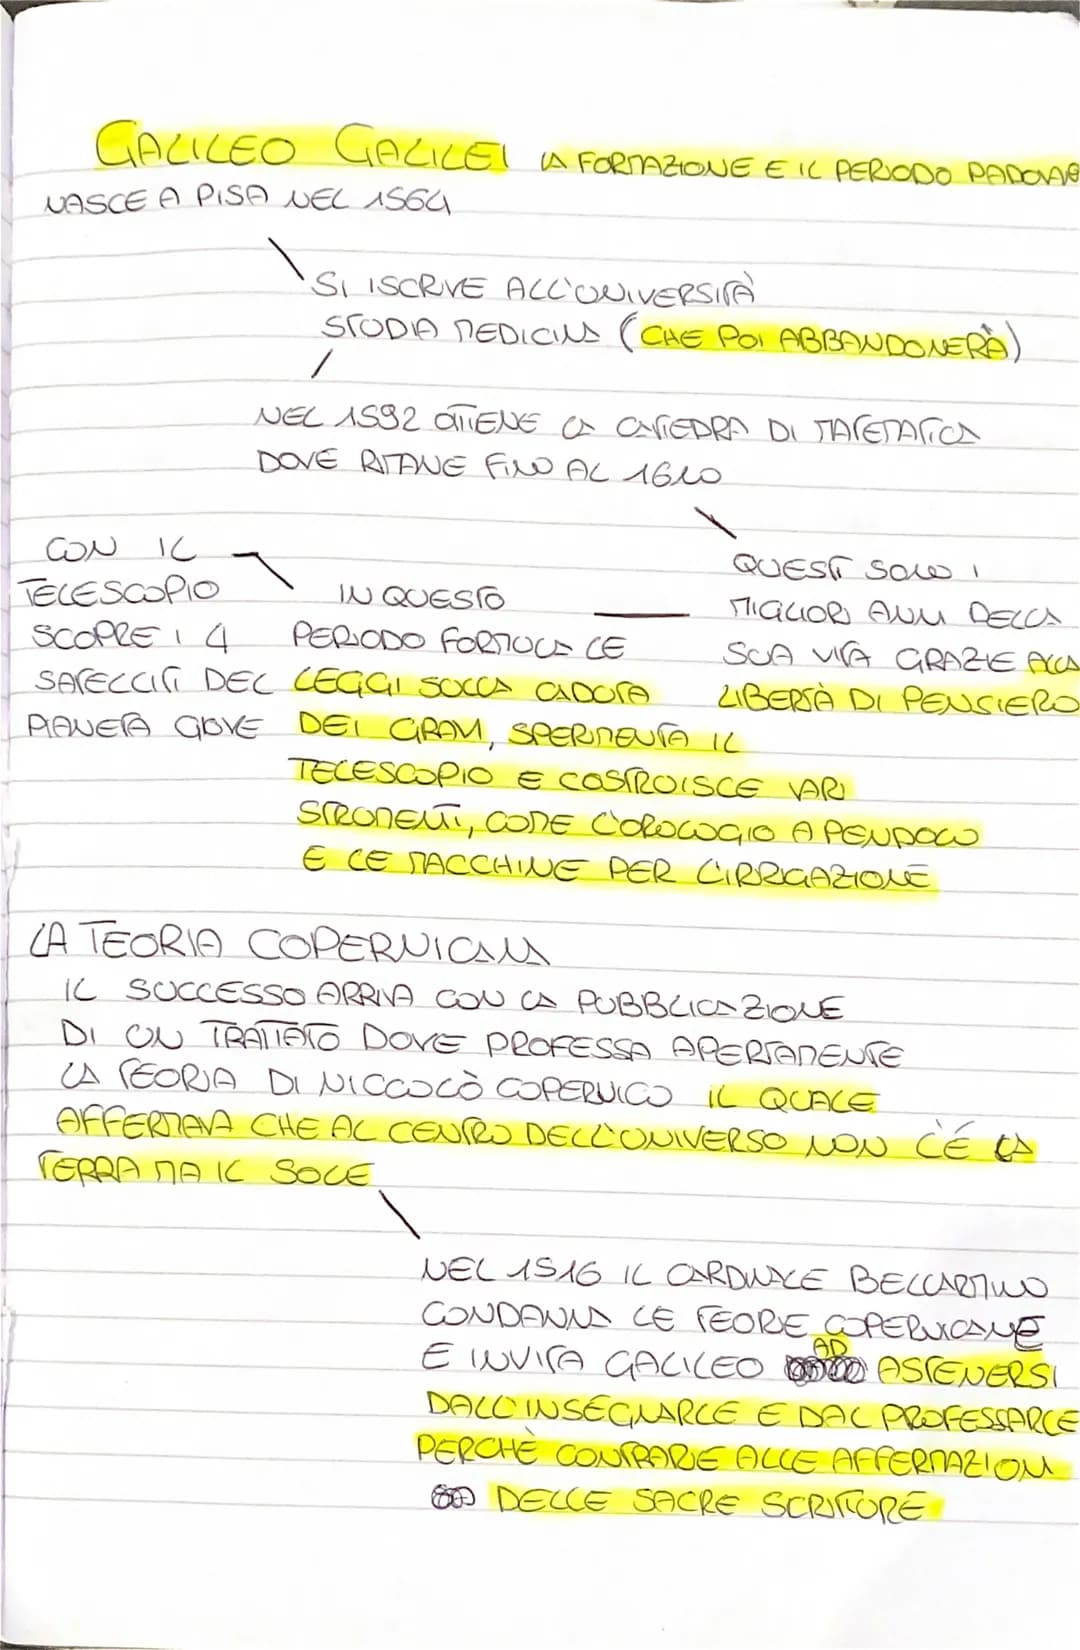 GALILEO GALILEI LA FORMAZIONE E IL PERIODO PADOVANO
NASCE A PISA NEL 1564
SI ISCRIVE ALL'UNIVERSITÀ
STUDIA MEDICINA (CHE POI ABBANDONERÀ)
NEL 1592 OTTIENE LA CATTEDRA DI MATEMATICA
DOVE RIMANE FINO AL 1610
CON IL
TELESCOPIO
SCOPRE I 4
SATELLITI DEL
PIANETA GIOVE
IN QUESTO
PERIODO FORMULA LE
LEGGI SULLA CADUTA
DEI GRAVI, SPERIMENTA IL
TELESCOPIO E COSTRUISCE VARI
STRUMENTI, COME L'OROLOGIO A PENDOLO
E LE MACCHINE PER L'IRRIGAZIONE
QUESTI SONO I
MIGLIORI ANNI DELLA
SUA VITA GRAZIE ALLA
LIBERTÀ DI PENSIERO
LA TEORIA COPERNICANA
IL SUCCESSO ARRIVA CON LA PUBBLICAZIONE
DI UN TRATTATO DOVE PROFESSA APERTAMENTE
LA TEORIA DI NICCOLÒ COPERNICO IL QUALE
AFFERMAVA CHE AL CENTRO DELL'UNIVERSO NON C'È LA
TERRA MA IL SOLE
NEL 1516 IL CARDINALE BELLARMINO
CONDANNA LE TEORIE COPERNICANE
E INVITA GALILEO AD ASTENERSI
DALL'INSEGNARLE E DAL PROFESSARLE
PERCHÈ CONTRARIE ALLE AFFERMAZIONI
DELLE SACRE SCRITTURE